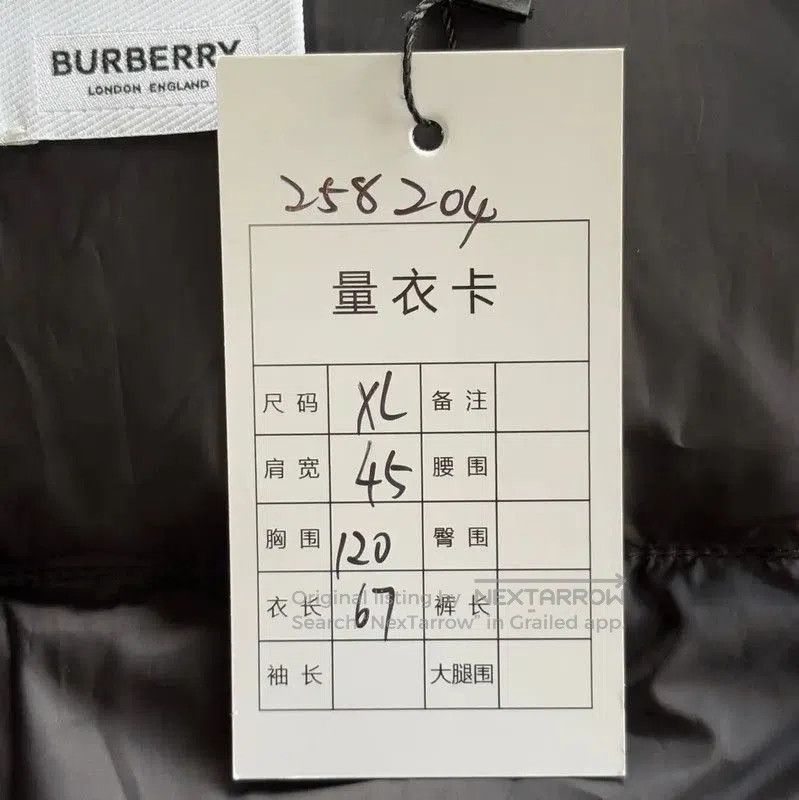 BURBERRY
LONDON ENGLAND
258204
量衣卡
尺码 XL 备注
肩宽 45 腰围
胸围 120 臀围
衣长 67 裤长
Original listing by NEXTARROW
Search "NexTarrow" in Grailed app
袖长 大腿围